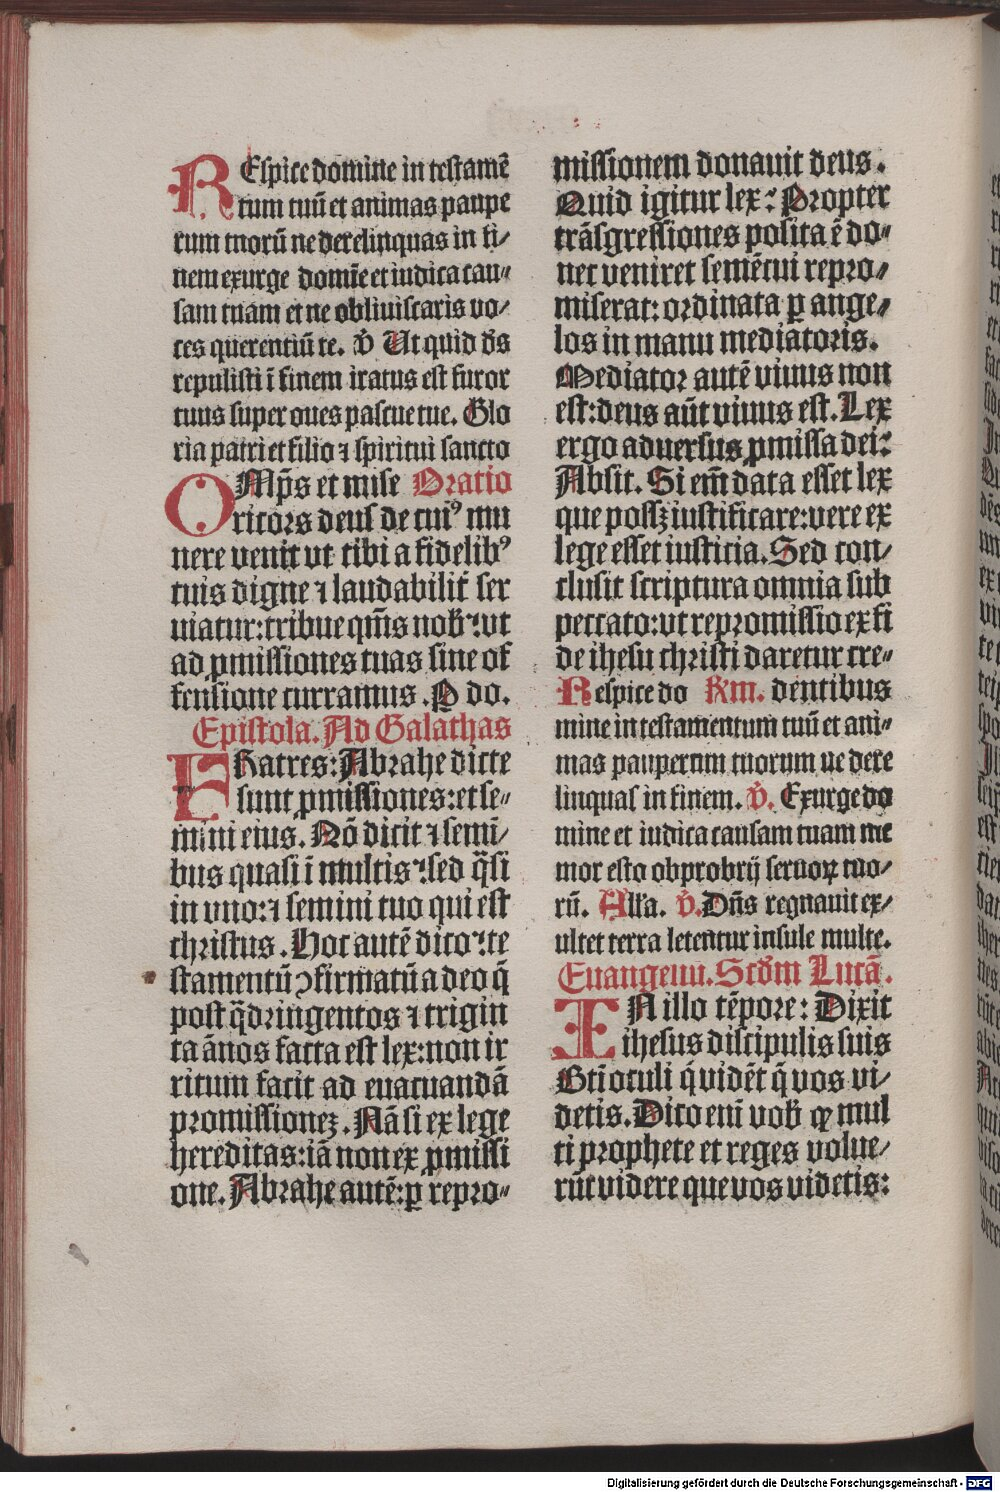 REspice domine in testamē
tum tuū et animas paupe
rum tuorū ne derelinquas in fi/
nem exurge domīe et iudica cau⸗
sam tuam et ne obliuiscaris vo/
ces querentiū te. v̄ Ut quid d̄s
repulisti ī finem iratus est furor
tuus super oues pascue tue. Glo
ria patri et filio ⁊ spiritui sancto
OMp̄s et mise Oratio
ricors deus de cuiꝰ mu
nere venit vt tibi a fidelibꝰ
tuis digne ⁊ laudabilit̄ ser
uiatur: tribue qm̄s nob̄ : vt
ad ꝓmissiones tuas sine of
fensione curramus. P do.
Epistola. Ad Galathas
FRatres: Abrahe dicte
sunt ꝓmissiones: et se⸗
mini eius. Nō dicit ⁊ semī/
bus quasi ī multis : sed q̄si
in vno: ⁊ semini tuo qui est
christus. Hoc autē dico : te
stamentū ꝯfirmatū a deo q̄
post q̄dringentos ⁊ trigin
ta ānos facta est lex: non ir
ritum facit ad euacuandā
promissionez. Nā si ex lege
hereditas: iā non ex ꝓmissi
one. Abrahe autē: ꝑ repro⸗
missionem donauit deus.
Quid igitur lex: Propter
trāsgressiones posita ē do⸗
nec veniret semē cui repro⸗
miserat: ordinata ꝑ ange⸗
los in manu mediatoris.
Mediator autē vnius non
est: deus aūt vnus est. Lex
ergo aduersus ꝓmissa dei:
Absit. Si em̄ data esset lex
que possꝫ iustificare: vere ex
lege esset iusticia. Sed con/
clusit scriptura omnia sub
peccato: vt repromissio ex fi
de ihesu christi daretur cre⸗
Respice do Rm. dentibus
mine in testamentum tuū et ani⸗
mas pauperum tuorum ne dere
linquas in finem. v̄. Exurge do
mine et iudica causam tuam me
mor esto obprobrij seruoꝝ tuo/
rū. Alla. v̄. Dn̄s regnauit ex/
ultet terra letentur insule multe.
Euangeliū. Scdm Lucā.
IN illo tēpore: Dixit
ihesus discipulis suis
Bt̄i oculi q̄ vidēt q̄ vos vi/
detis. Dico enī vob̄ ꝙ mul
ti prophete et reges volue/
rūt videre que vos videtis:
Digitalisierung gefördert durch die Deutsche Forschungsgemeinschaft - DFG